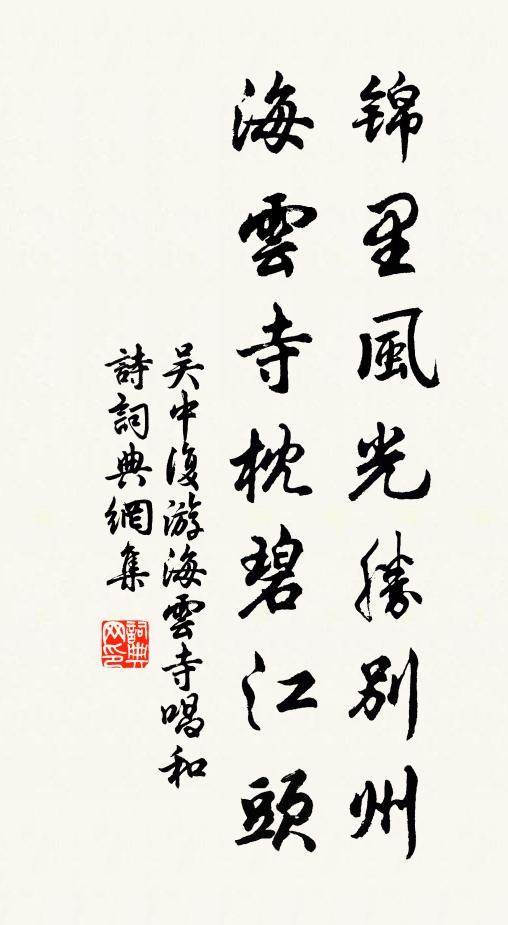 锦里風光勝别州
海雲寺枕碧江頭
吴中復游海雲寺唱和
詩詞典網集
詞典网印